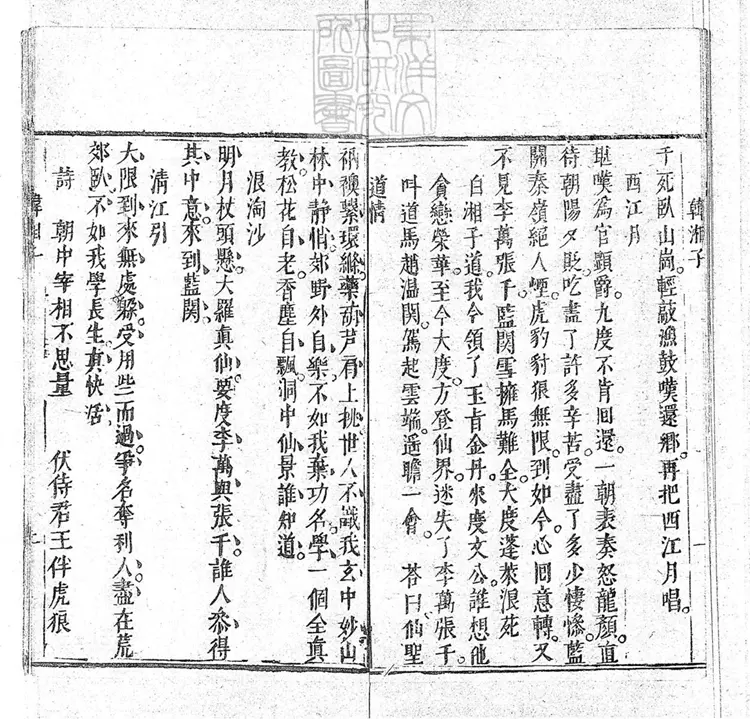 韓湘子
一
千死臥山崗。輕敲漁鼓嘆還鄉。再把西江月唱。
西江月
堪嘆為官顯爵九度不肯囬還。一朝表奏怒龍顏直
待朝陽夕貶吃盡了許多辛苦。受盡了多少悽慘藍
關秦嶺絕人煙。虎豹豺狼無限。到如今心囬意轉。又
不見李萬張千。藍関雪擁馬難全。大度蓬萊浪死
白湘子道。我今領了玉旨金丹。來度文公。誰想他
貪戀榮華。至今大度。方登仙界。迷失了李萬張千
叫道馬趙温関。駕起雲端。遥瞻一會。答曰仙聖
道情
衲襖繫環縧。藥葫芦肩上挑。世人不識我玄中妙。山
林中靜悄。郊野外自樂。不如我棄功名。學一個全真
教。松花自老。香塵自飄。洞中仙景誰知道。
浪淘沙
明月杖頭懸。大羅真仙。要度李萬與張千。誰人叅得
其中意。來到藍関。
清江引
大限到來無處躱。受用些而過。爭名奪利人。盡在荒
郊臥。不如我學長生。真快活。
詩　朝中宰相不思量　伏侍君王伴虎狼
東洋文化研究所圖書